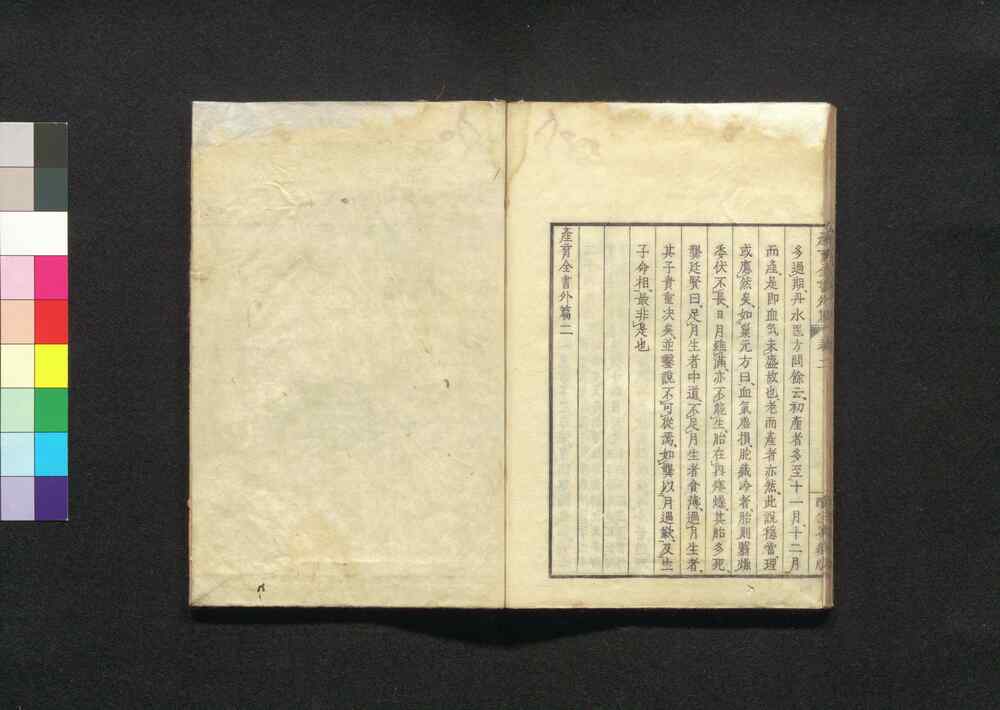 多過期、丹水醫方問餘云、初產者多至十一月、十二月
而產、是即血氣未盛故也、老而產者亦然、此說穩當、理
或應然矣、如巢元方曰、血氣虛損、胞藏冷者、胎則翳燥
委伏不長、日月雖滿、亦不能生、胎在內痿燥、其胎多死、
龔廷賢曰、足月生者中道、不足月生者貪薄、過月生者、
其子貴重决矣、並鑿說不可從焉、如龔以月過歉、及生
子命相、最非是也
產育全書外篇二